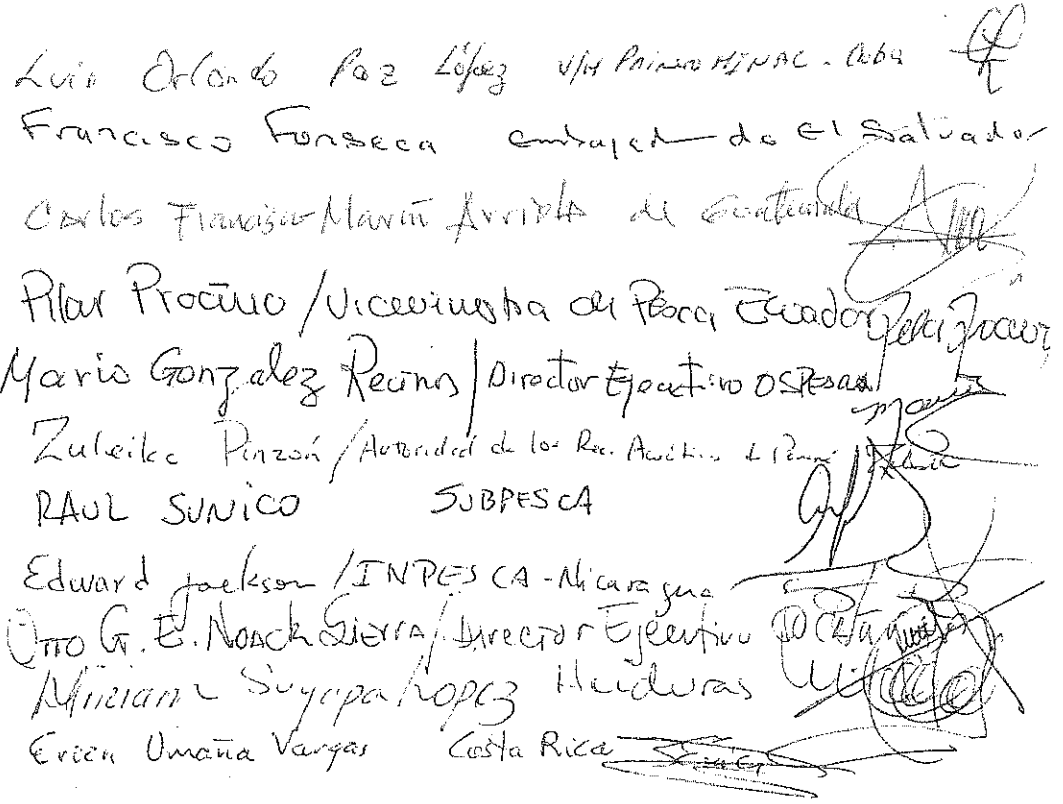 Luis Orlando Paz López V/M Primero MINAL - Cuba
Francisco Fonseca embajada de El Salvador
Carlos Francisco Marín Arriola de Guatemala
Pilar Proaño / Viceministra de Pesca Ecuador
Mario González Recinos / Director Ejecutivo OSPESCA
Zuleika Pinzón / Autoridad de los Rec. Acuáticos de Panamá
RAUL SUNICO SUBPESCA
Edward Jackson / INPESCA - Nicaragua
Otto G. E. Noack Sierra / Director Ejecutivo
Miriam Suyapa López Honduras
Erick Umaña Vargas Costa Rica